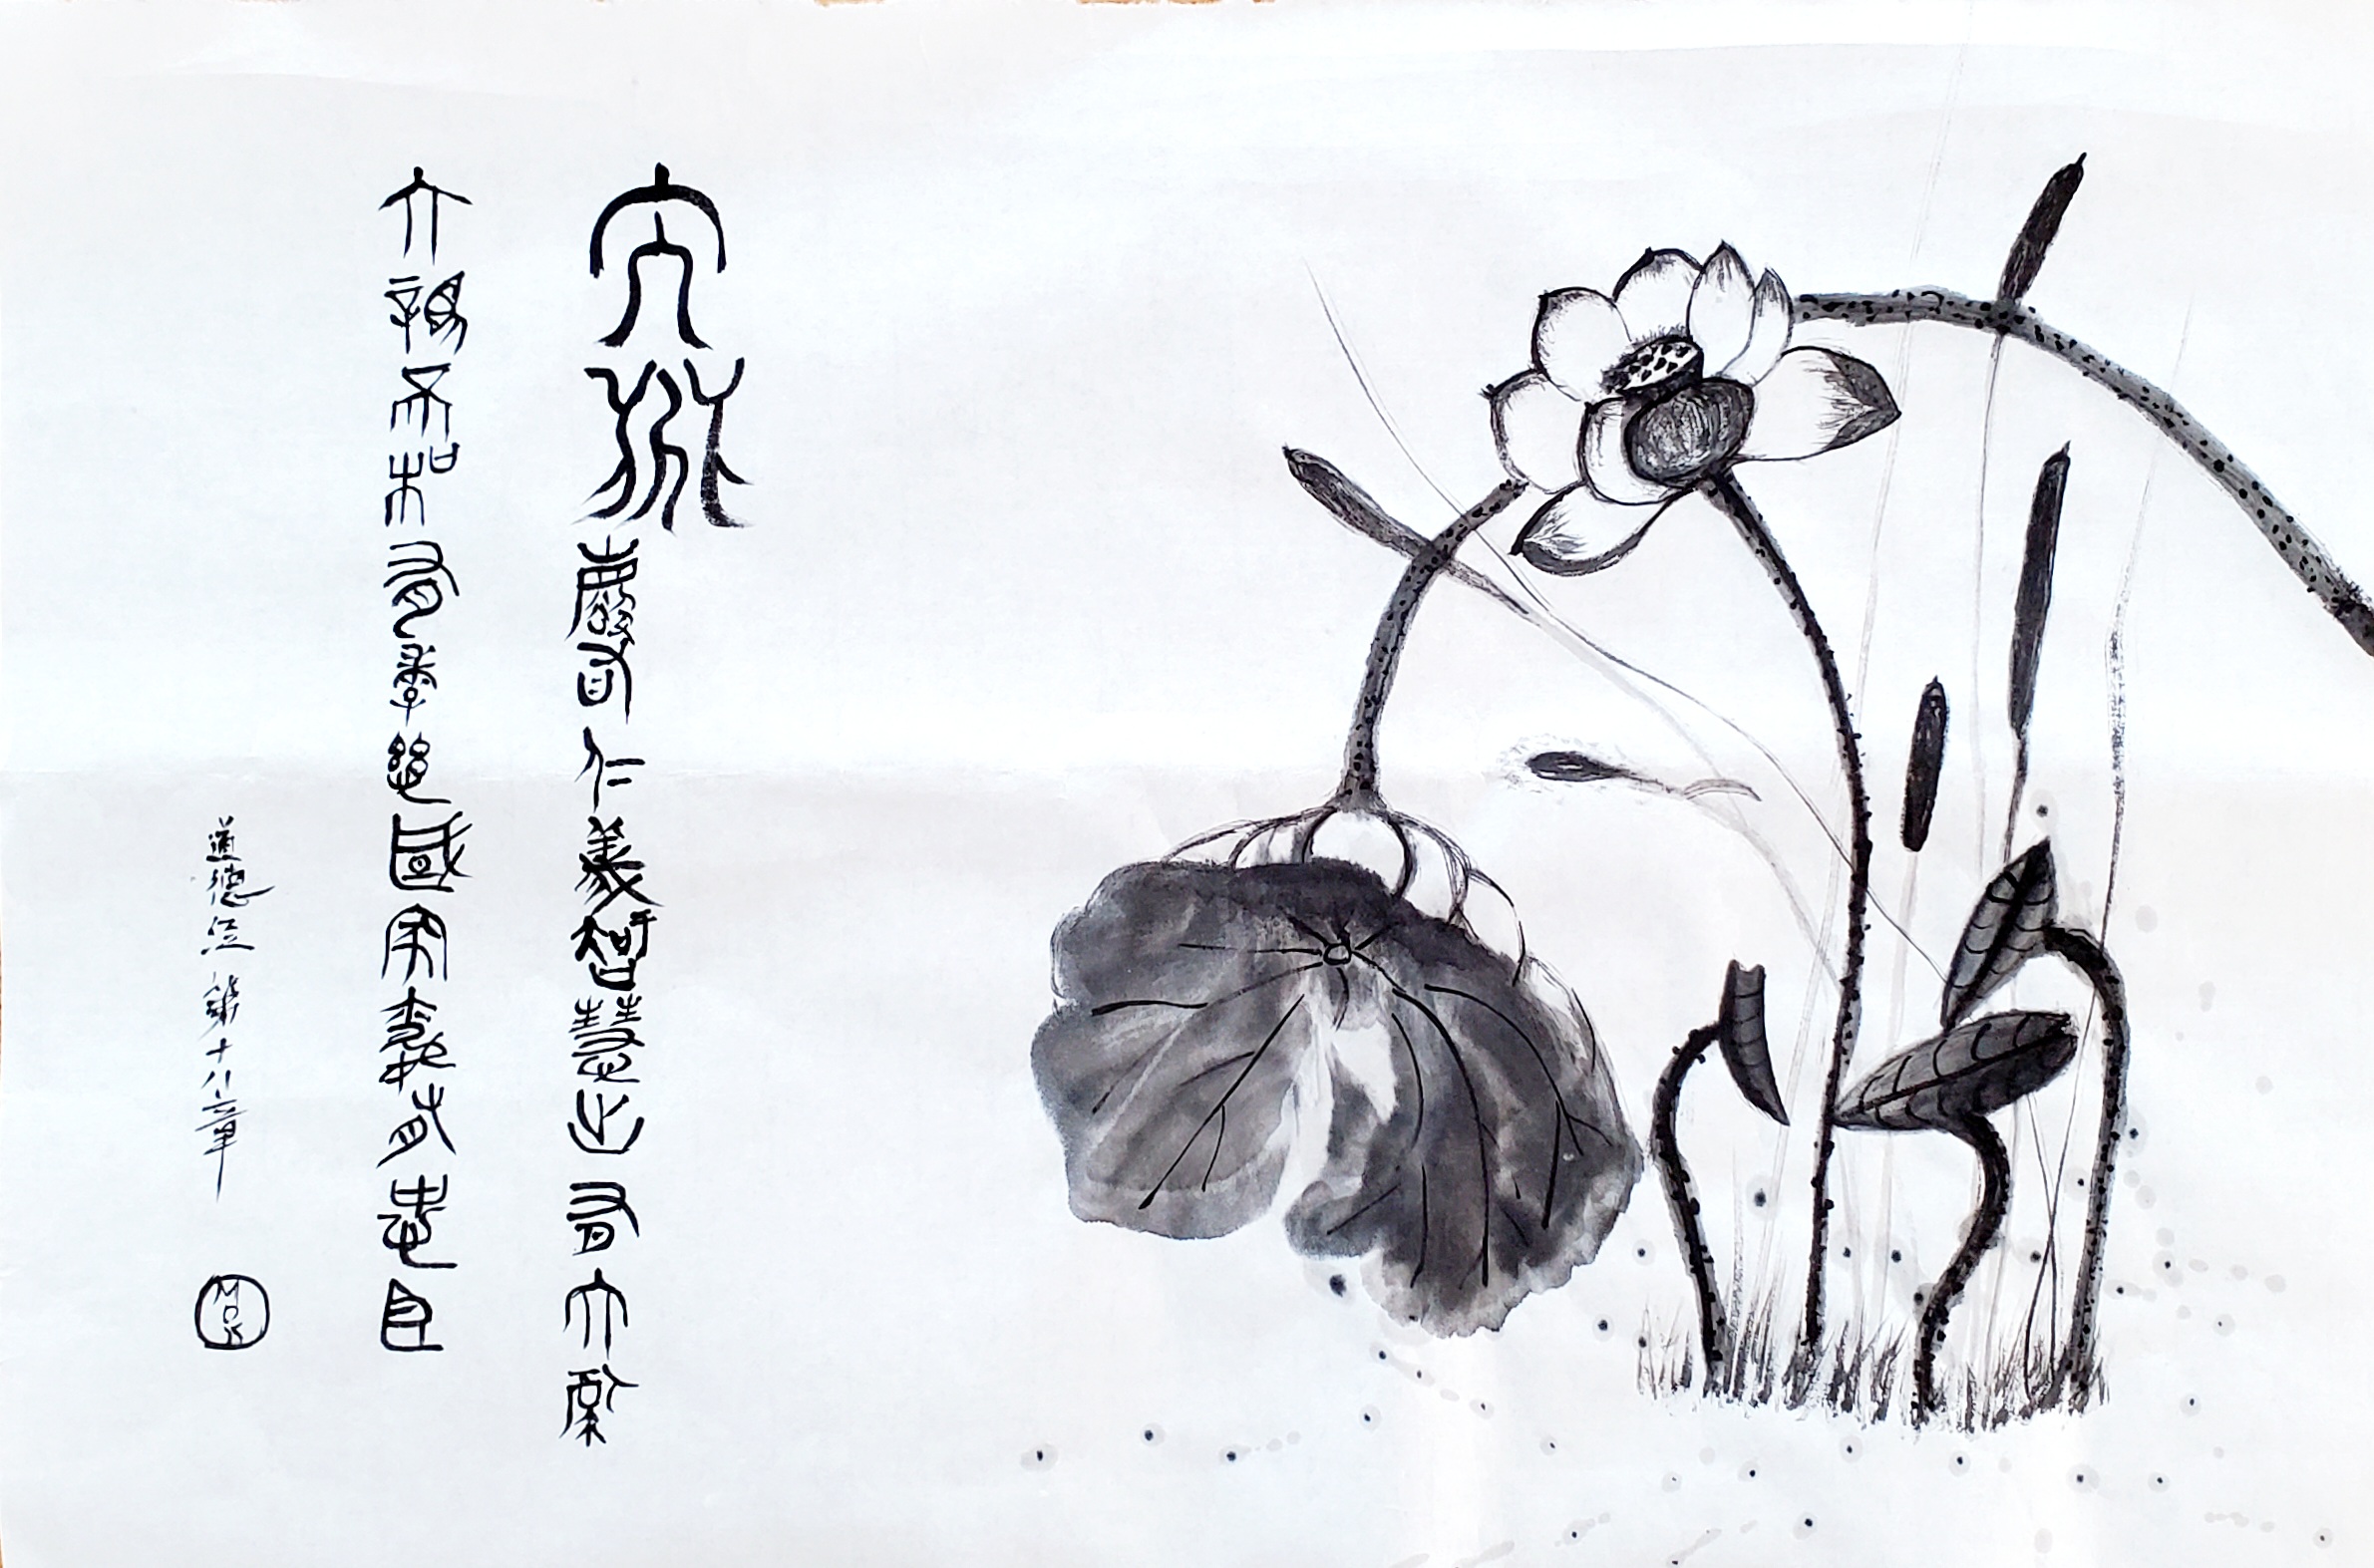 大道廢有仁義智慧出有大偽
六親不和有孝慈國家昏亂有忠臣
道德經第十八章
MOK